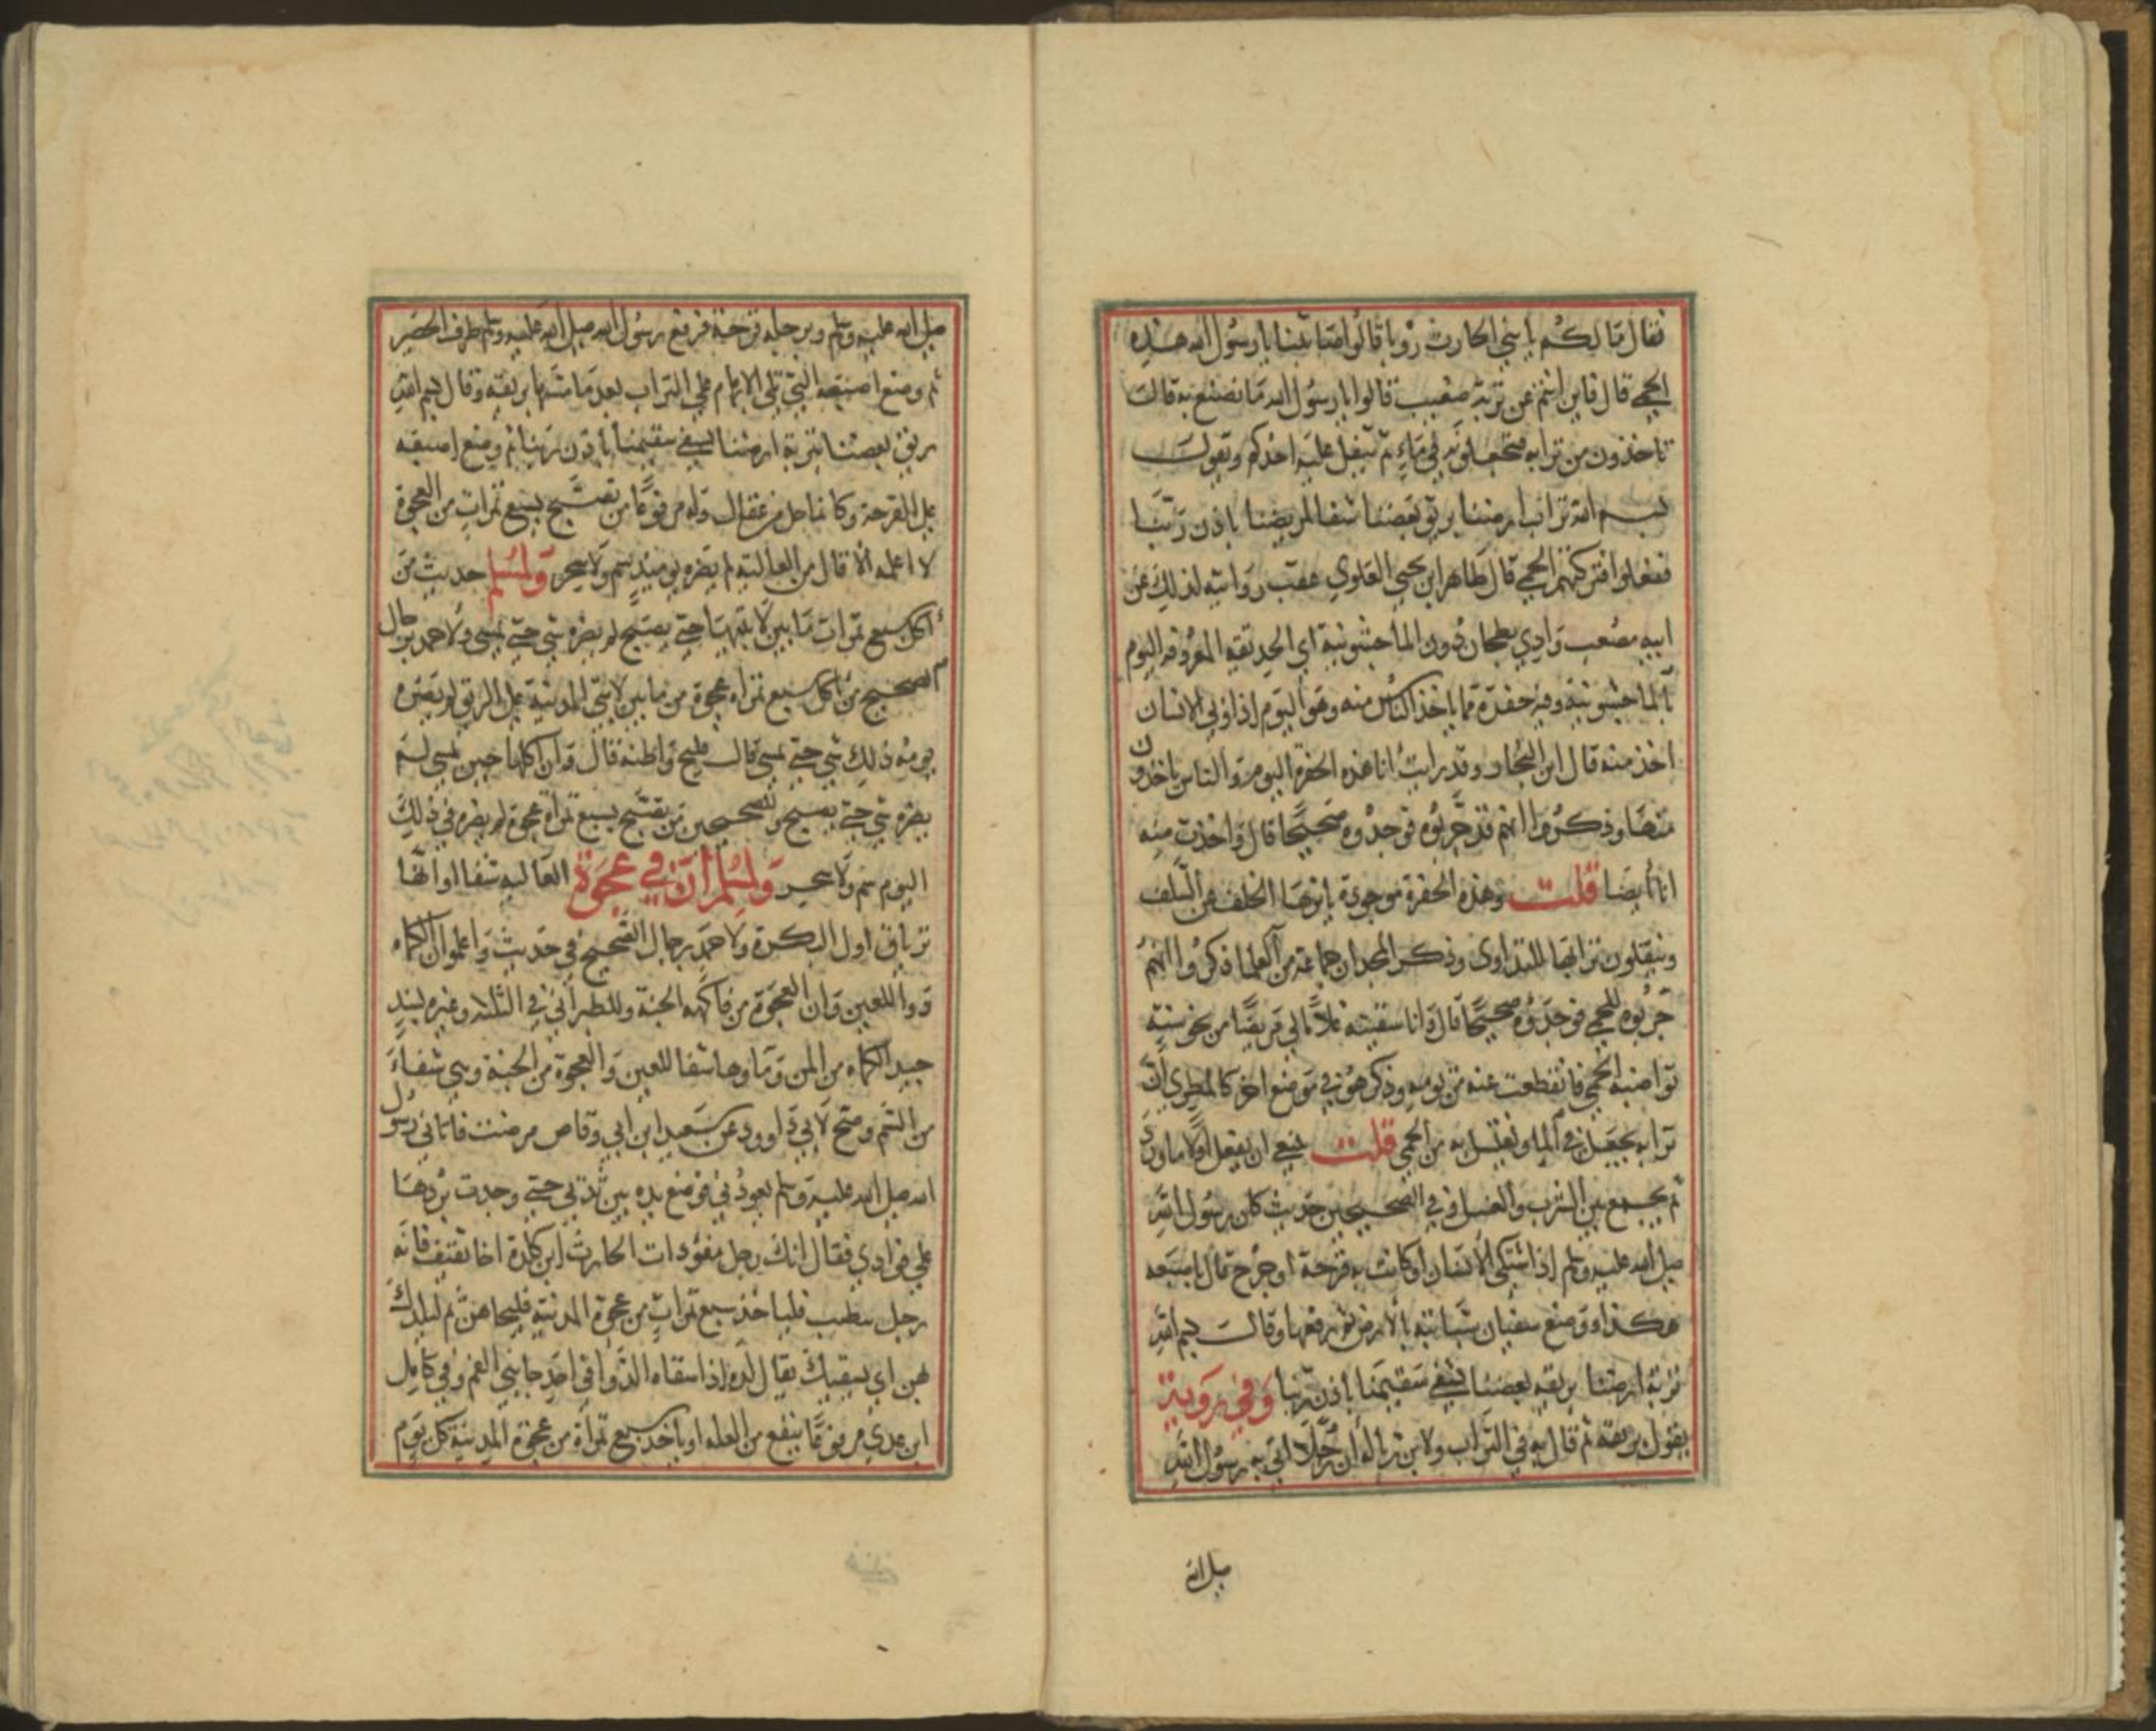 فقال مالكم يا بني الحارث روبا قالوا اصابتنا يا رسول الله هذه
الحمى قال فاين انتم عن تربة صعيب قالوا يا رسول الله ما نصنع به قالت
تاخذون من ترابه فتجعلونه في ماء ثم يتفل عليه احدكم وتقول
بسم الله تراب ارضنا بريق بعضنا شفا لمريضنا باذن ربنا
ففعلوا فتركتهم الحمى قال طاهر ابن يحيى العلوي عقب روايته لذلك عن
ابيه صعيب وادي بطحان دون الماجشونية اي الحديقه المعروفه اليوم
بالماجشونية وفيه حفرة مما ياخذ الناس منه وهو اليوم اذا وبي الانسان
اخذ منه قال ابن النجار وقد رايت انا هذه الحفرة اليوم والناس ياخذون
منها وذكروا انهم قد جربوه فوجدوه صحيحا قال واخذت منه
انا ايضا قلت وهذه الحفرة موجودة ياثرها الخلف عن السلف
وينقلون ترابها للتداوى وذكر المجد ان جماعة من العلما ذكروا انهم
جربوه للحمى فوجدوه صحيحا قال وانا سقيته غلاما لي مريضا من نحو سنة
تواضبه الحمى فانقطعت عنه من يومه وذكر هو في موضع اخر كالمطري ان
ترابه يجعل في الما ويغتسل به من الحمى قلت فينبغي ان يفعل اولا ما ورد
ثم يجمع بين الشرب والغسل وفي الصحيحين حديث كان رسول الله
صلى الله عليه وسلم اذا اشتكى الانسان او كانت به قرحة او جرح قال باصبعه
هكذا ووضع سفيان سبابته بالارض ثم رفعها وقالت بسم الله
تربة ارضنا بريقه بعضنا يشفى سقيمنا باذن ربنا وفي رويه
يقول بريقه ثم قال به في التراب ولابن زباله ان رجلا اتى به رسول الله
صلى الله
صلى الله عليه وسلم وبرجله قرحة فرفع رسول الله صلى الله عليه وسلم طرف الحصير
ثم وضع اصبعه التي تلي الابهام على التراب بعد ما مسها بريقه وقال بسم الله
بريق بعضنا بتربة ارضنا ليشفى سقيمنا باذن ربنا ثم وضع اصبعه
على القرحة وكانما حل من عقال وله مرفوعا من تصبح بسبع تمرات من العجوة
لا اعلمه الا قال من العالية لم يضره يوميذ سم ولا سحر ولمسلم حديث من
اكل سبع تمرات مما بين لابتيها حتى يصبح لم يضره شي حتى يمسي ولاحمد برجال
الصحيح من اكل سبع تمراه عجوة من ما بين لابتي المدينة على الريق لم يضره
يومه ذلك شي حتى يمسي قالت فليح واظنه قال وان اكلها حين يمسي لم
يضره شي حتى يصبح وللصحيحين من تصبح بسبع تمراة عجوة لم يضره في ذلك
اليوم سم ولا سحر ولمسلم ان في عجوة العاليه شفا او انها
ترياق اول البكرة ولاحمد برجال الصحيح في حديث واعلموا ان الكماه
دوا للعين وان العجوة من فاكهه الجنة وللطبراني في الثلاثه وغيره بسند
جيد الكماه من المن وماوها شفا للعين والعجوة من الجنة وهي شفاء
من السم وصح لابي داوود عن سعيد ابن ابي وقاص مرضت فاتاني رسول
الله صلى الله عليه وسلم يعودني فوضع يده بين ثديي حتى وجدت بردها
على فوادي فقال انك رجل مفؤد ات الحارث ابن كلدة اخا ثقيف فانه
رجل يتطبب فلياخذ سبع تمرات من عجوة المدينة فليجاهن ثم ليلدك
بهن اي يسقيك يقال لده اذا سقاه الدوا في احد جانبي الفم وفي كامل
ابن عدي مرفوعا ينفع من العله او ياخذ سبع تمراة من عجوة المدينة كل يوم